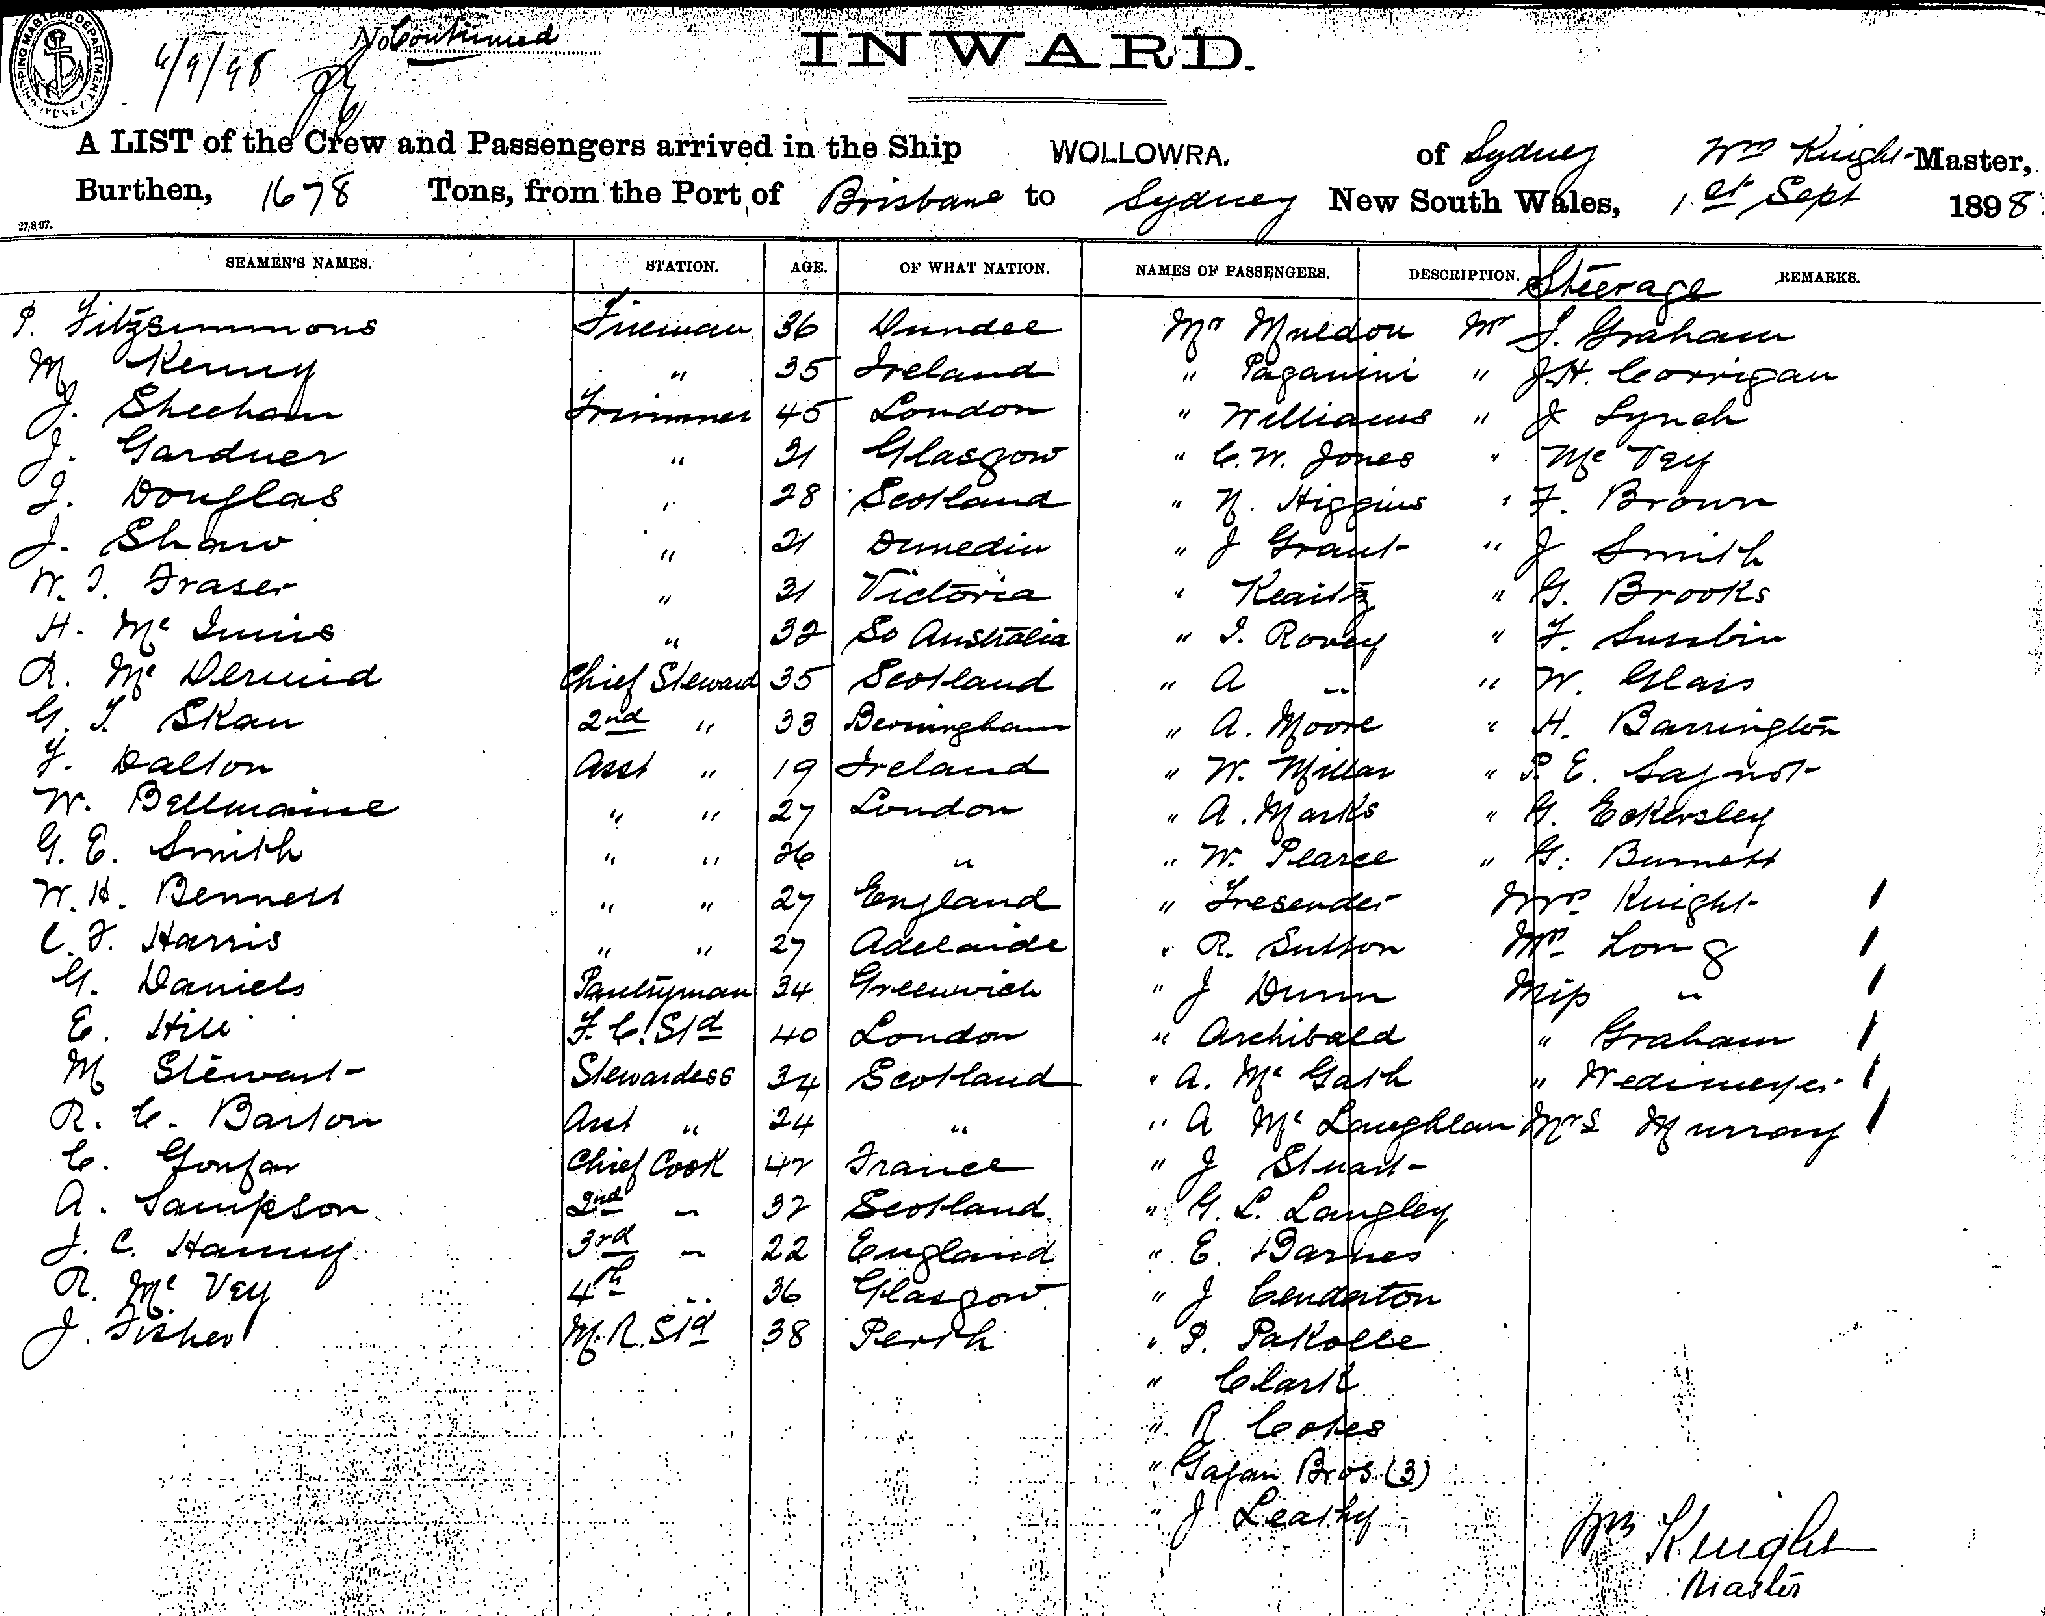 SHIPPING MASTER'S DEPARTMENT
6/9/98 No Continued
INWARD.
A LIST of the Crew and Passengers arrived in the Ship WOLLOWRA. of Sydney Wm Knight Master,
Burthen, 1678 Tons, from the Port of Brisbane to Sydney New South Wales, 1st Sept 1898
27.8.97.
SEAMEN'S NAMES. STATION. AGE. OF WHAT NATION. NAMES OF PASSENGERS. DESCRIPTION. Steerage REMARKS.
P. Fitzsimmons Fireman 36 Dundee Mr Muldon Mr J. Graham
M Kenny " 35 Ireland " Paganini " J.H. Corrigan
J. Sheehan Trimmer 45 London " Williams " J Lynch
J. Gardner " 21 Glasgow " C.W. Jones " Mc Vey
J. Douglas " 28 Scotland " N. Higgins " F. Brown
J. Shaw " 21 Dunedin " J Grant " J Smith
W. J. Fraser " 31 Victoria " " G. Brooks
H. Mc Innis " 32 So Australia " I. Rovey "  F.
R. Mc Dermid Chief Steward 35 Scotland " A " " W. Glass
G. T. Skau 2nd " 33 Bermingham " A. Moore " H. Barrington
J. Dalton Asst " 19 Ireland " W. Millar " P. E.
W. Bellmaine " " 27 London " A. Marks " G. Eckersley
G. E. Smith " " 26 " " W. Pearce " G. Burnett
W. H. Bennett " " 27 England " Tresender Mrs Knight 1
C. F. Harris " " 27 Adelaide " R. Sutton Mrs Long 1
G. Daniels Pantryman 34 Greenwich " J Dunn Miss " 1
E. Hill F. C. Std 40 London " Archibald " Graham 1
M Stewart Stewardess 34 Scotland " A. Mc Gath " Wedimeyer 1
R. C. Barton Asst " 24 " " A Mc Laughlan Mrs Murray 1
C. Chief Cook 42 France " J Stuart
A. Sampson 2nd " 32 Scotland " G. L. Langley
J. C. Hanny 3rd " 22 England " E. Barnes
R. Mc Vey 4th " 36 Glasgow " J Cendarton
J. Fisher M. R. Std 38 Perth " P. Pakolle
" Clark
" R. Cokes
" Gagan Bros. (3)
" J Leathy
Wm Knight
Master